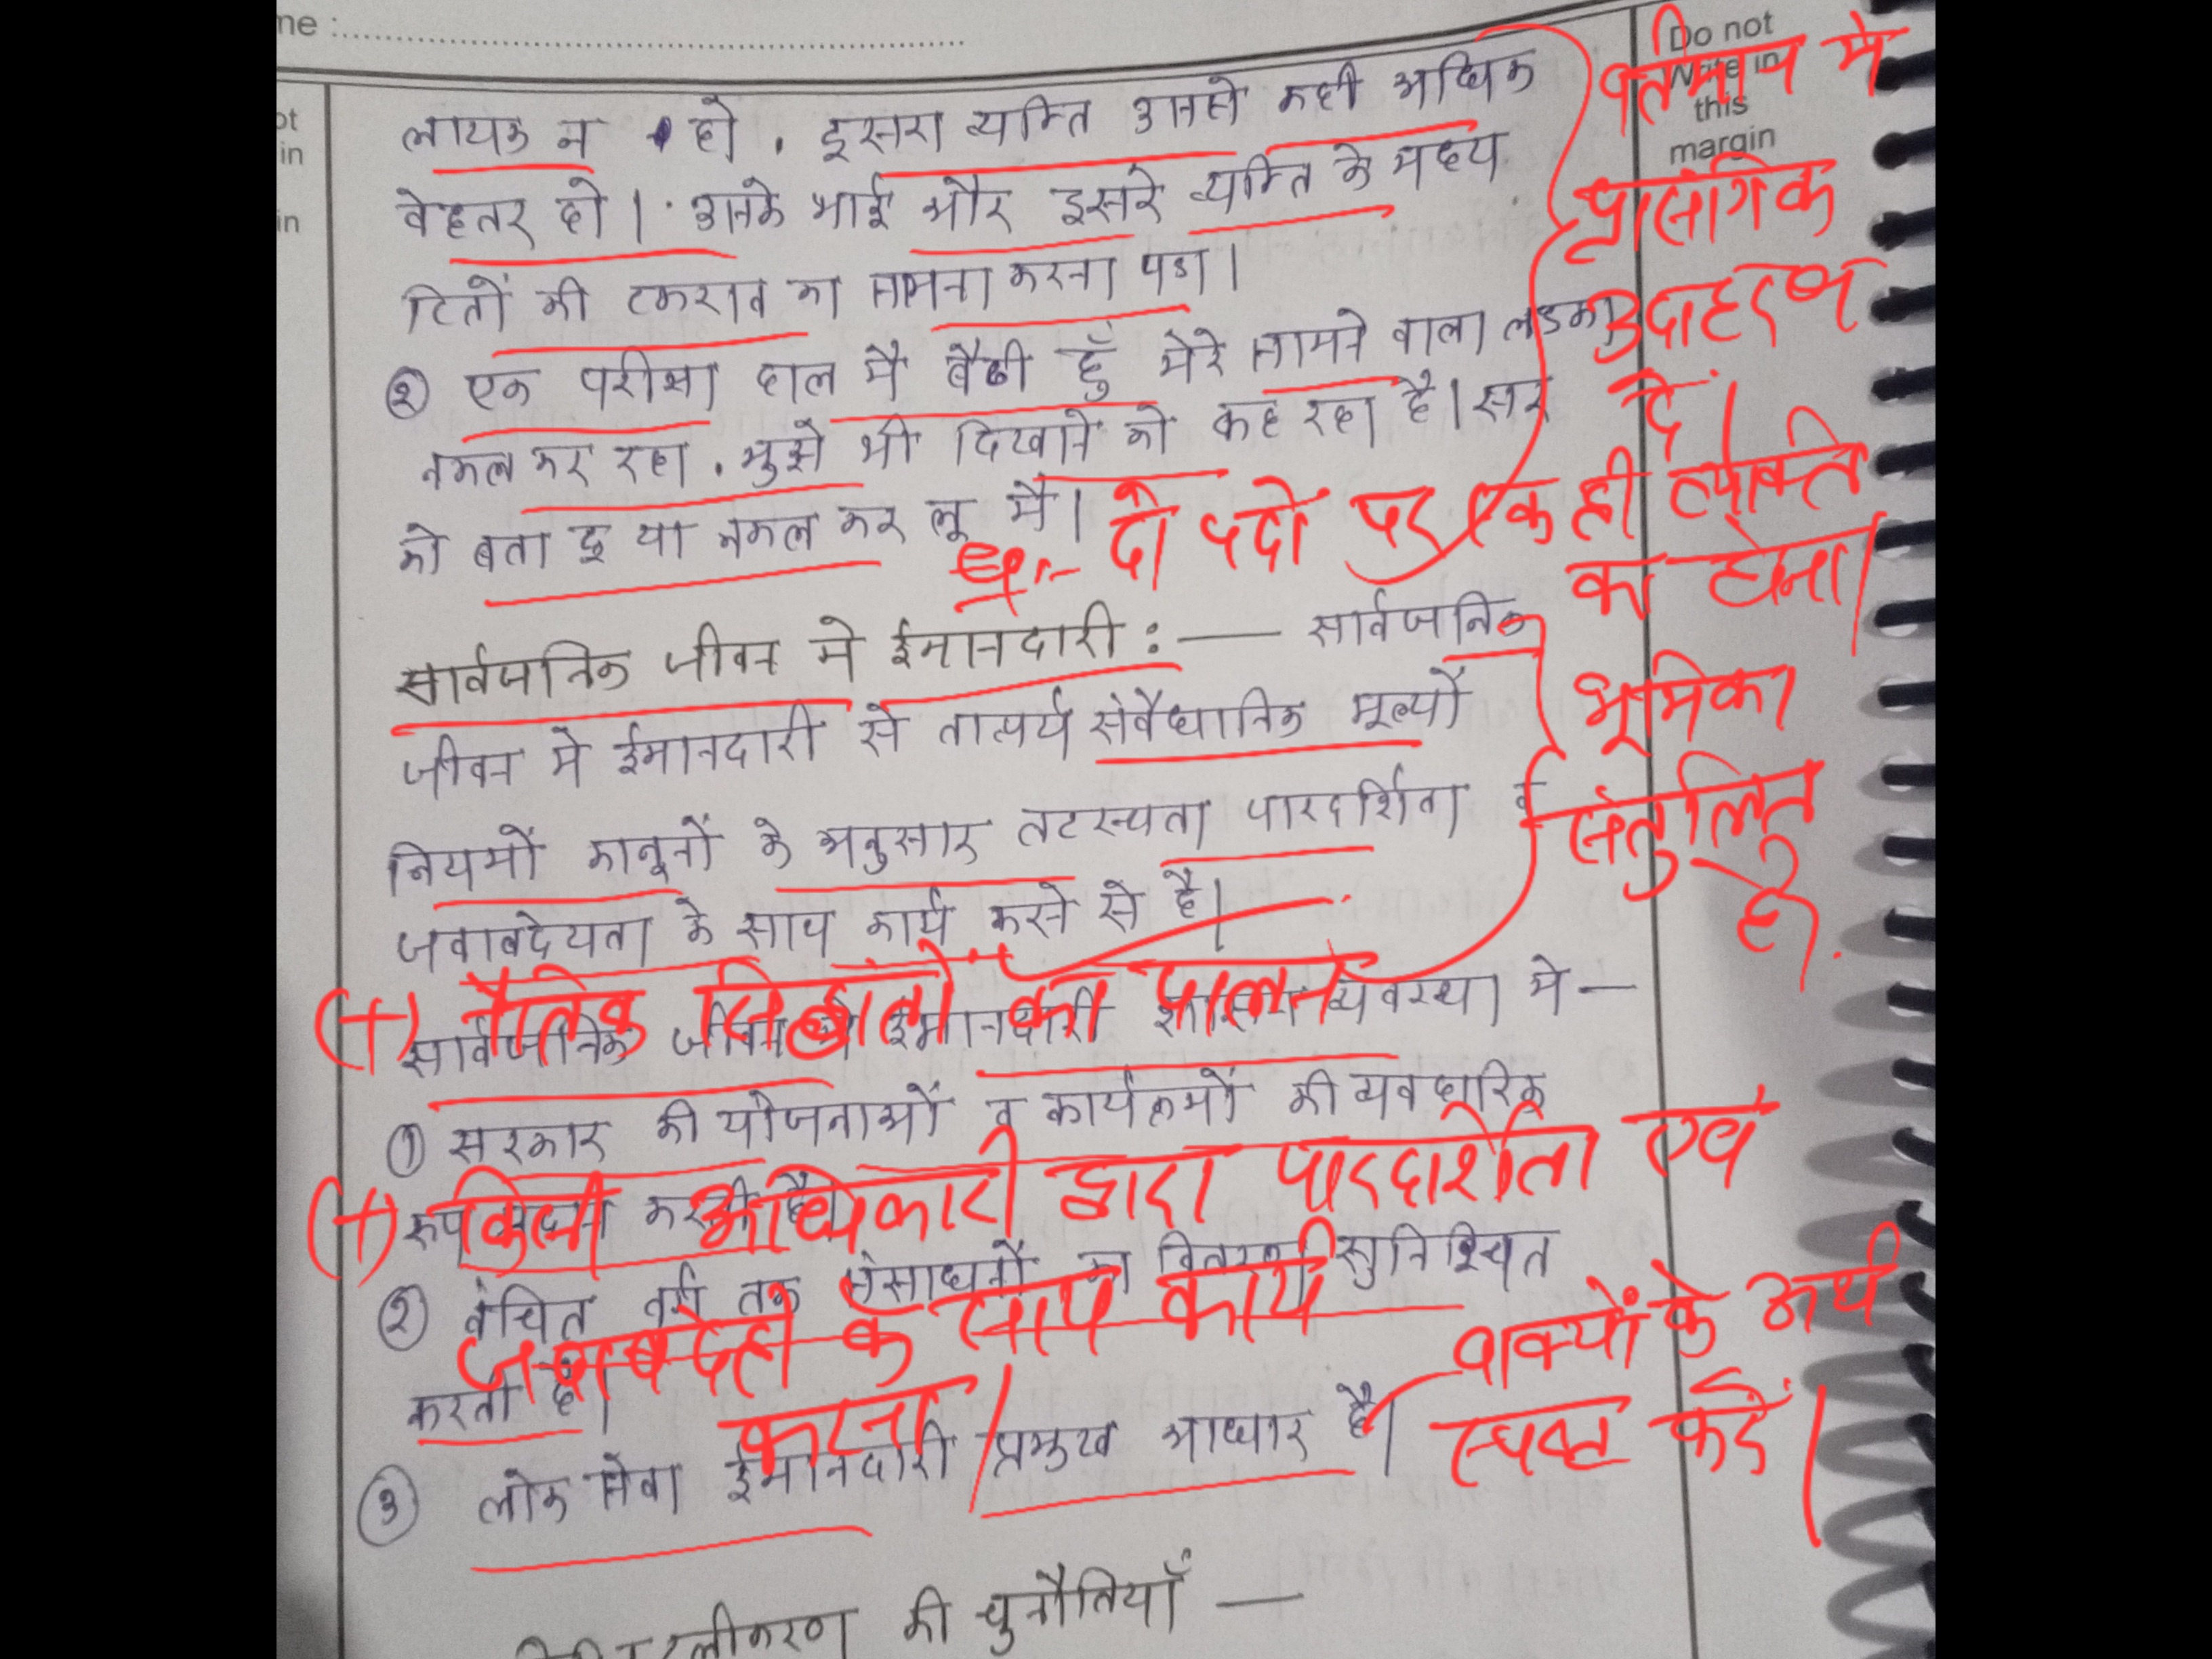 me :
Do not
Write in
this
margin
ot
in
in
लायक न हो. दूसरा व्यक्ति उनसे कही अधिक
बेहतर हो। उनके भाई और दूसरे व्यक्ति के मध्य
हितों की टकराव का सामना करना पडा।
② एक परीक्षा हाल मै बैठी हुँ मेरे सामने वाला लडका
नकल कर रहा. मुझे भी दिखाने को कह रहा है। सर
को बता दू या नकल कर लू मैं।
वर्तमान में
प्रासंगिक
उदाहरण
दें।
eg:- दो पदों पर एक ही व्यक्ति
का होना।
सार्वजनिक जीवन मे ईमानदारी :— सार्वजनिक
जीवन मे ईमानदारी से तात्पर्य संवैधानिक मूल्यों
नियमों कानूनों के अनुसार तटस्थता पारदर्शिता व
जवाबदेयता के साथ कार्य करने से है।
भूमिका
संतुलित
है.
(+) नैतिक सिद्धांतों का पालन
सार्वजनिक जीवन ईमानदारी व्यवस्था मे —
① सरकार की योजनाओं व कार्यक्रमों की व्यवहारिक
रूप
(+) किसी अधिकारी द्वारा पारदर्शिता एवं
② वंचित वर्ग तक संसाधनों का वितरण सुनिश्चित
जवाबदेही के साथ कार्य
करती है।
करना।
③ लोक सेवा ईमानदारी प्रमुख आधार है।
वाक्यों के अर्थ
स्पष्ट करें।
की चुनौतियाँ —